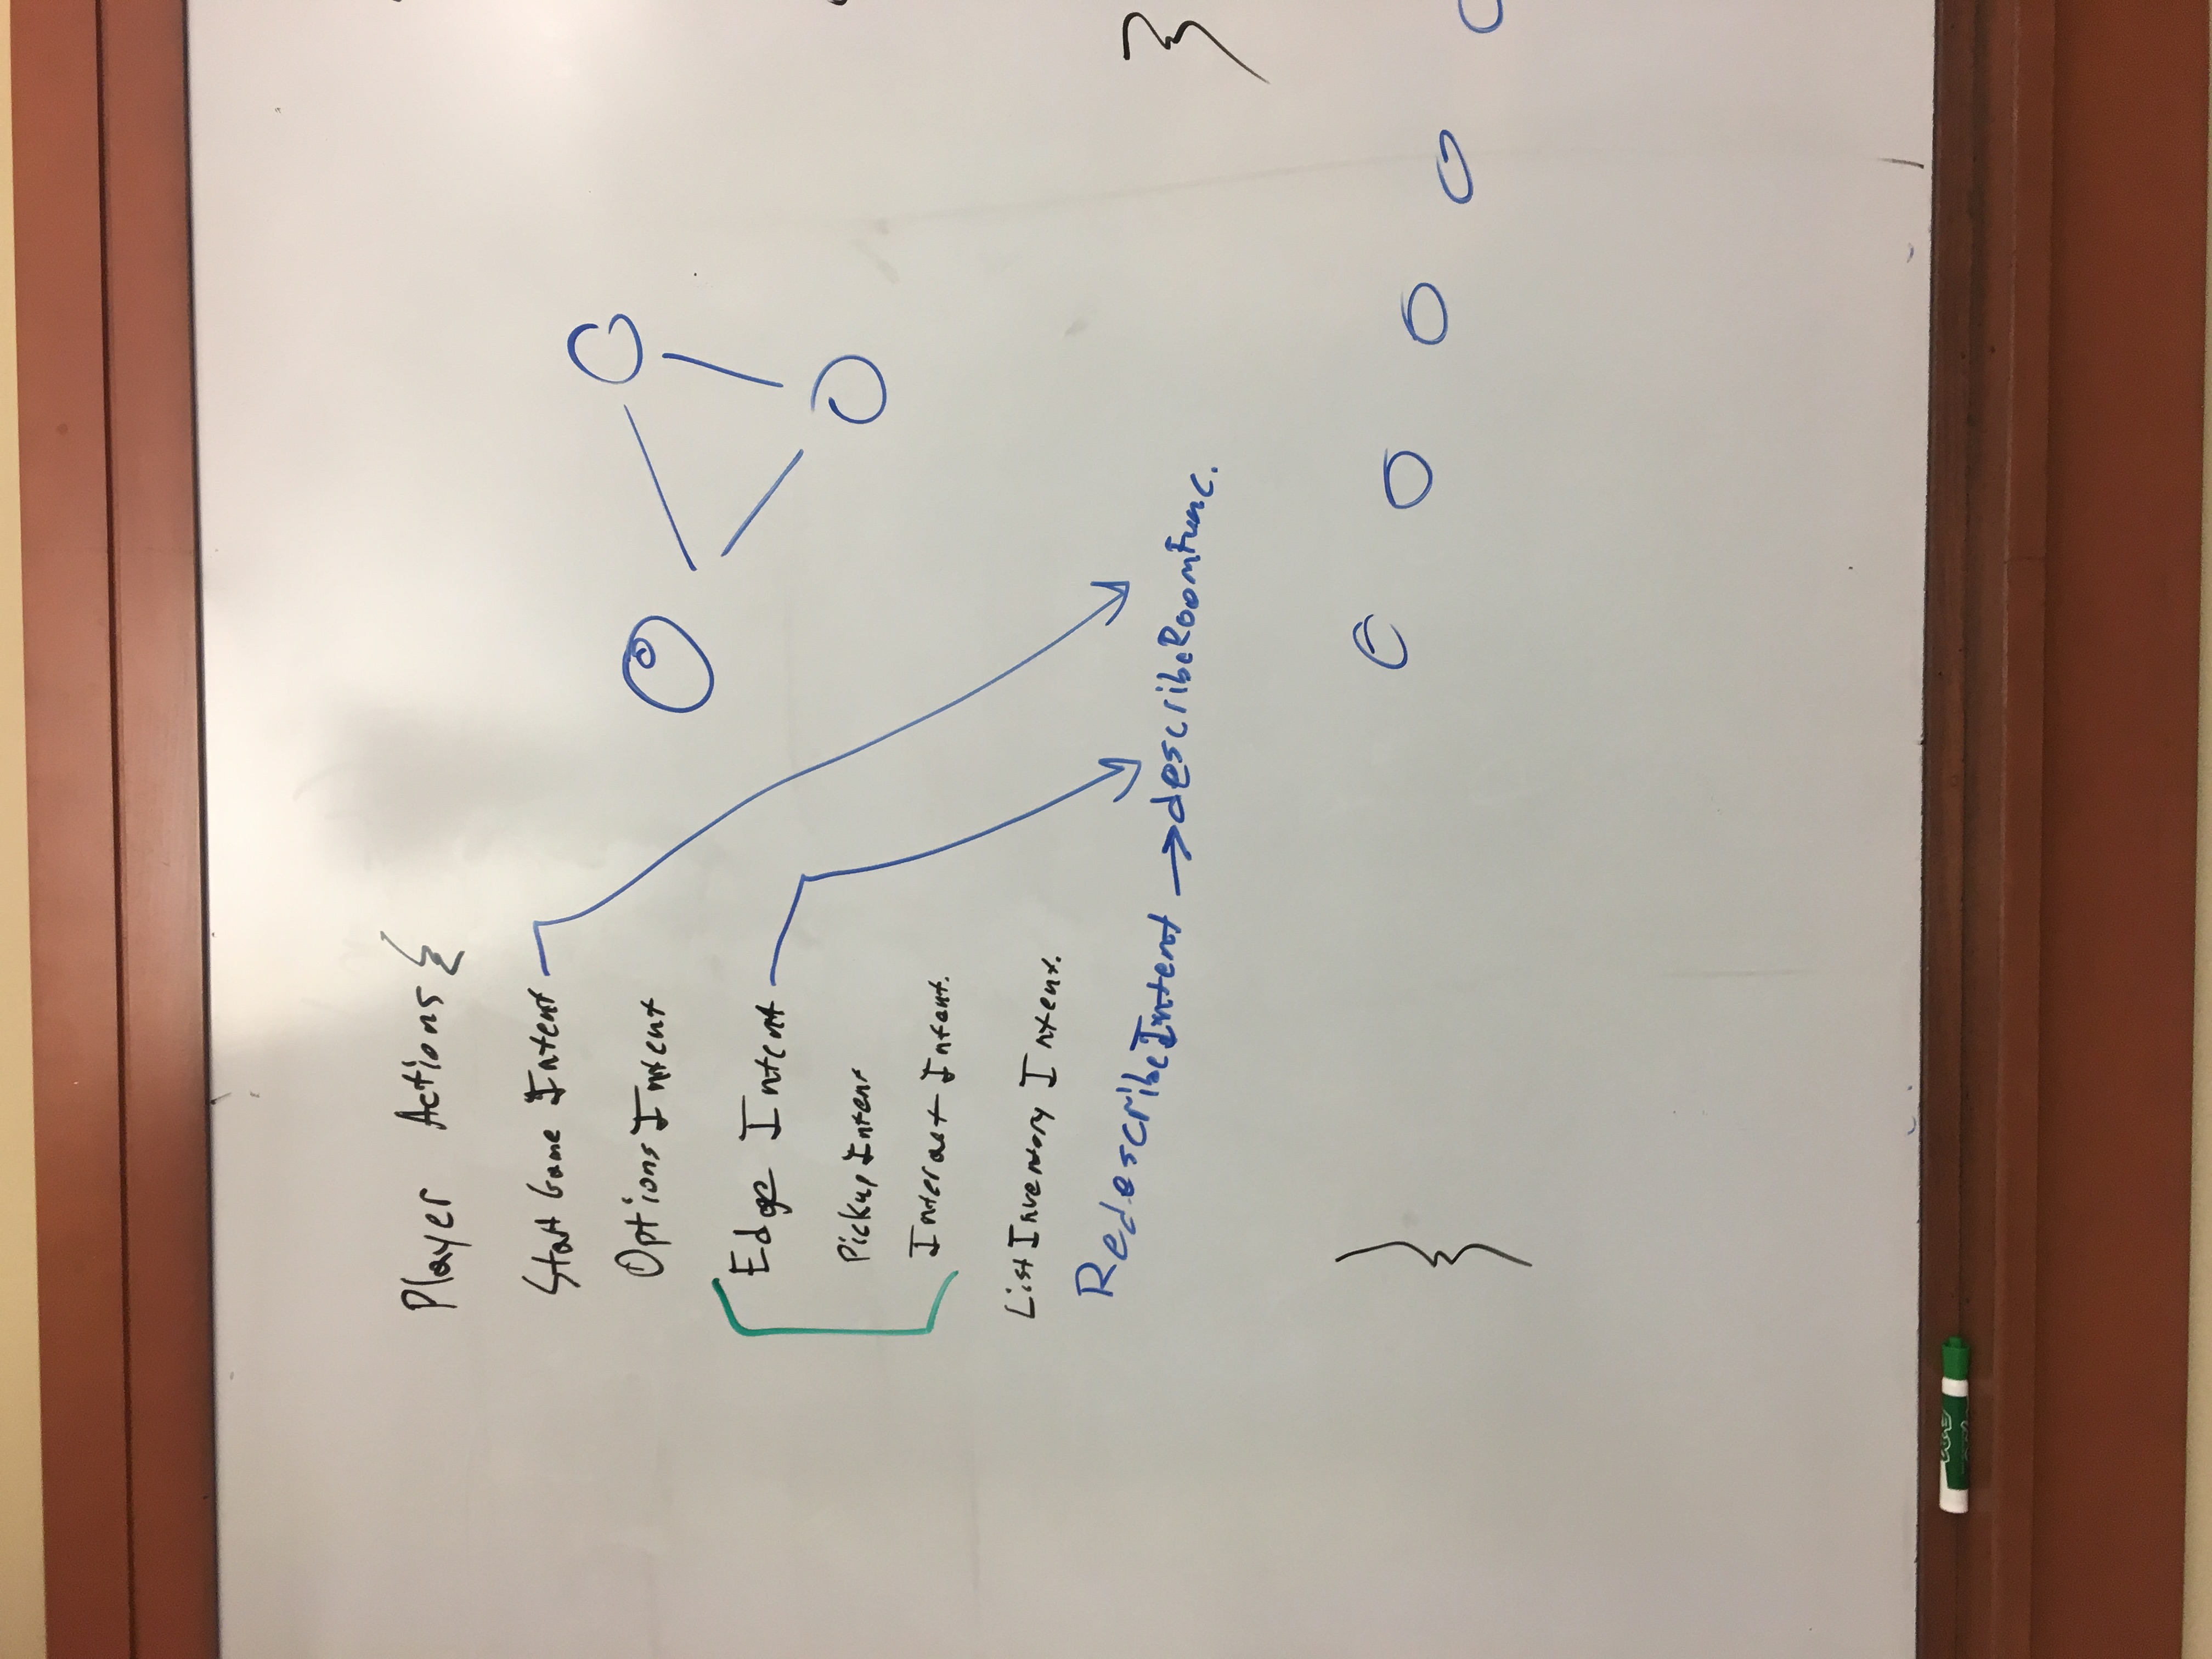 Player Actions {
Start Game Intent
Options Intent
Edge Intent
Pickup Intent
Interact Intent.
List Inventory Intent.
RedescribeIntent → describeRoomFunc.
}
}